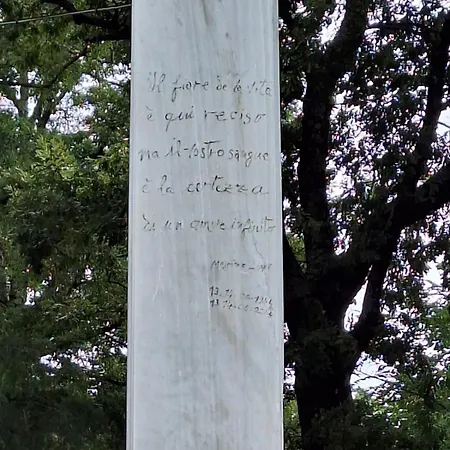 il fiore de la vita
è qui reciso
ma il vostro sangue
è la certezza
di un amore infinito